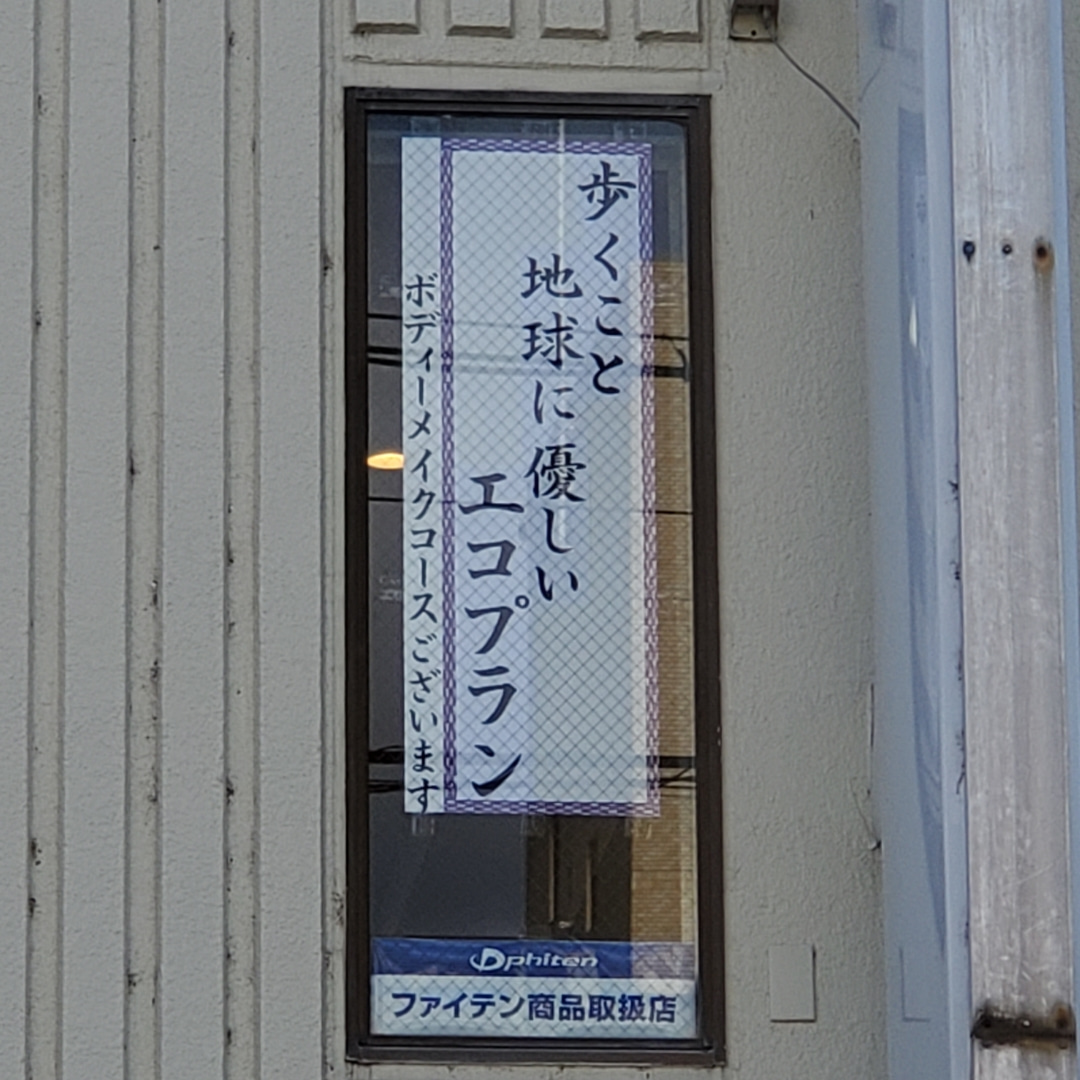 歩くこと
地球に優しい
エコプラン
ボディーメイクコースございます
phiten
ファイテン商品取扱店